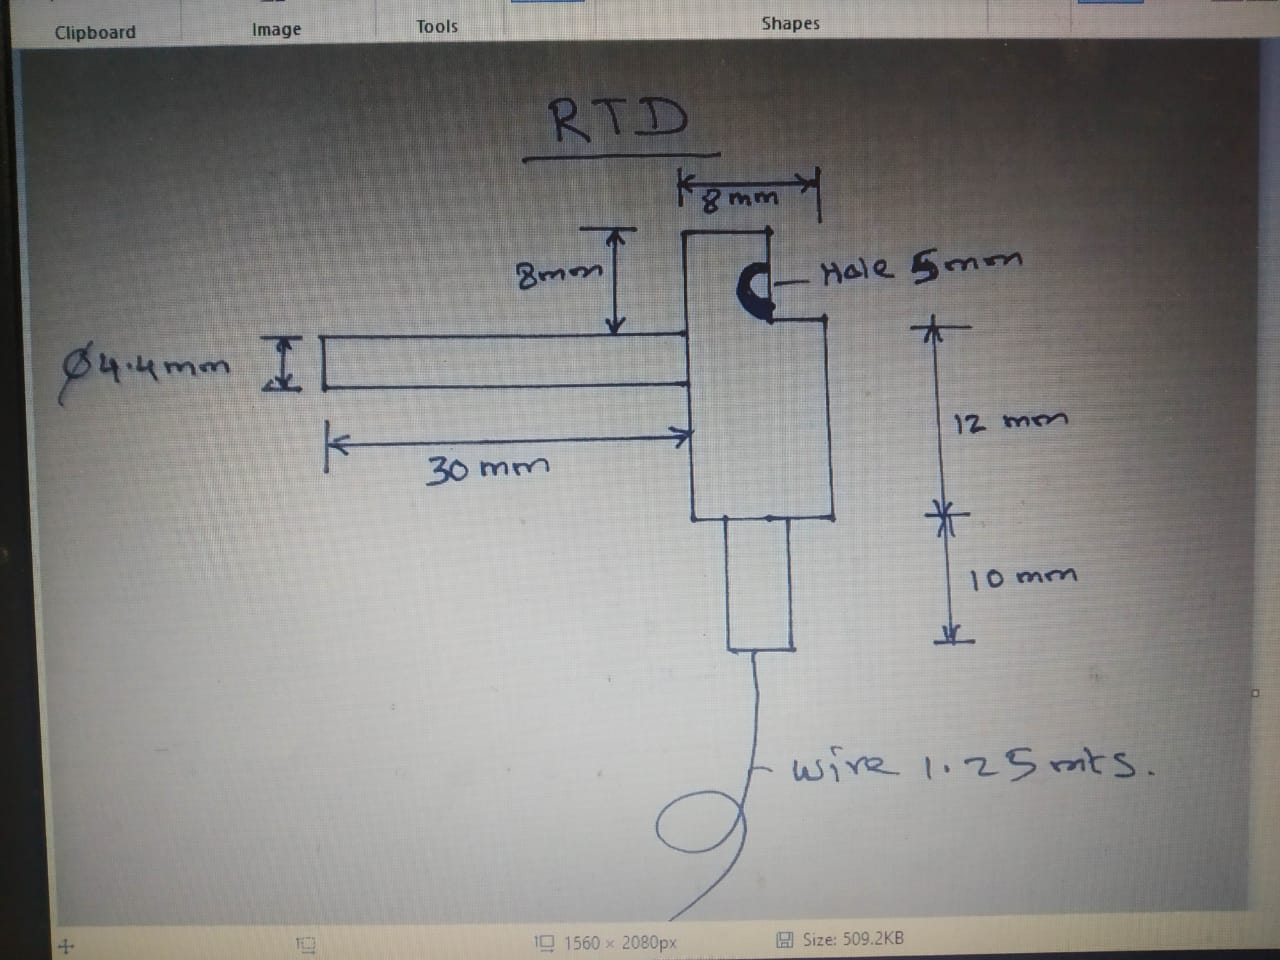 Clipboard
Image
Tools
Shapes
RTD
8mm
8mm
Hole 5mm
Ø4.4mm
12 mm
30 mm
10 mm
wire 1.25 mts.
1560 × 2080px
Size: 509.2KB